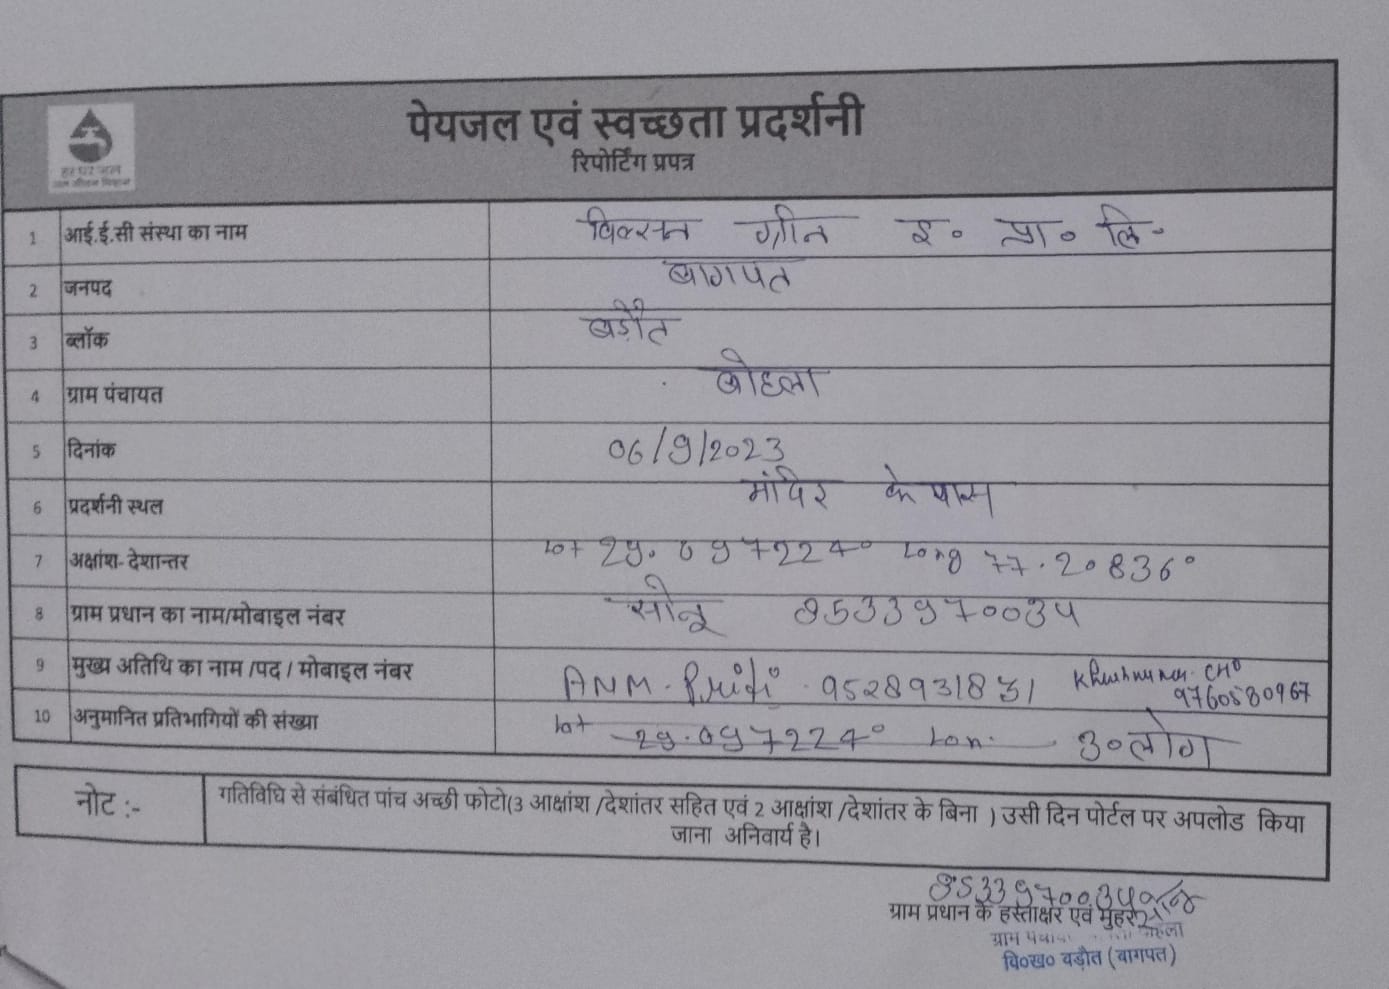 हर घर जल
जल जीवन मिशन
पेयजल एवं स्वच्छता प्रदर्शनी
रिपोर्टिंग प्रपत्र
1 आई.ई.सी संस्था का नाम विल्सन ग्रीन इ० प्रा० लि०
2 जनपद बागपत
3 ब्लॉक बड़ौत
4 ग्राम पंचायत बोहला
5 दिनांक 06/9/2023
6 प्रदर्शनी स्थल मंदिर के पास
7 अक्षांश- देशान्तर Lat 29.097224° Long 77.20836°
8 ग्राम प्रधान का नाम/मोबाइल नंबर सोनू 8533970034
9 मुख्य अतिथि का नाम /पद / मोबाइल नंबर ANM - Priti - 9528931831 CHO
9760580967
10 अनुमानित प्रतिभागियों की संख्या Lat 29.097224° Lon. 30 लोग
नोट :- गतिविधि से संबंधित पांच अच्छी फोटो(3 आक्षांश /देशांतर सहित एवं 2 आक्षांश /देशांतर के बिना ) उसी दिन पोर्टल पर अपलोड किया
जाना अनिवार्य है।
8533970034
ग्राम प्रधान के हस्ताक्षर एवं मुहर
ग्राम
वि०ख० बड़ौत (बागपत)